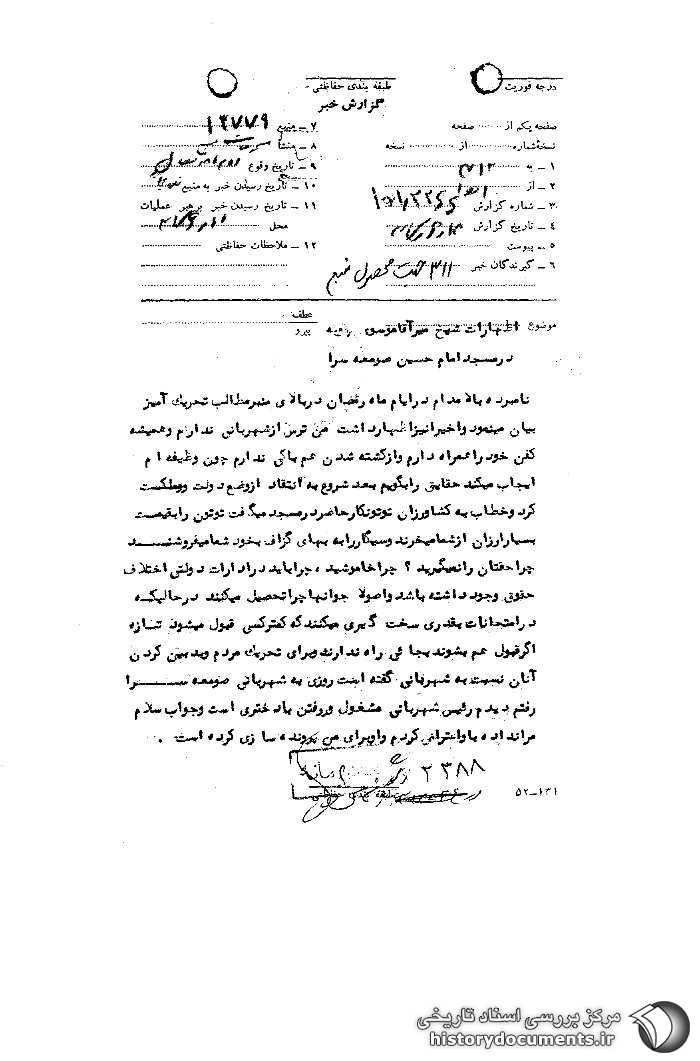 درجه فوریت
طبقه بندی حفاظتی
گزارش خبر
صفحه یکم از صفحه
نسخه شماره از نسخه
۱ ـ به ۳۱۲
۲ ـ از
۳ ـ شماره گزارش
۴ ـ تاریخ گزارش
۵ ـ پیوست
۶ ـ گیرندگان خبر ۳۱۱ جهت محصول منبع
۷ ـ منبع ۱۲۷۷۹
۸ ـ منشأ
۹ ـ تاریخ وقوع
۱۰ ـ تاریخ رسیدن خبر به منبع
۱۱ ـ تاریخ رسیدن خبر برهبر عملیات
محل
۱۲ ـ ملاحظات حفاظتی
عطف
پیرو
موضوع اظهارات شیخ میرآقاموسوی
درمسجد امام حسین صومعه سرا
نامبرده بالا مدام درایام ماه رمضان دربالای منبرمطالب تحریك آمیز
بیان مینمود واخیرانیزاظهارداشت من ترس ازشهربانی ندارم وهمیشه
کفن خود راهمراه دارم وازکشته شدن هم باکی ندارم چون وظیفه ام
ایجاب میکند حقایق رابگویم بعد شروع به انتقاد ازوضع دولت ومملکت
کرد وخطاب به کشاورزان توتونکارحاضردرمسجد میگفت توتون رابقیمت
بسیارارزان ازشمامیخرند وسیگاررابه بهای گزاف بخود شمامیفروشند
چراحقتان رانمیگیرید ؟ چراخاموشید ، چراباید درادارات دولتی اختلاف
حقوق وجود داشته باشد واصولا جوانهاچراتحصیل میکنند درحالیکه
درامتحانات بقدری سخت گیری میکنند که کمترکسی قبول میشود تازه
اگرقبول هم بشوند بجائی راه ندارند وبرای تحریك مردم وبدبین کردن
آنان نسبت به شهربانی گفته است روزی به شهربانی صومعه سرا
رفتم دیدم رئیس شهربانی مشغول وررفتن بادختری است وجواب سلام
مرانداده باواعتراض کردم واوبرای من پرونده سازی کرده است .
۲۳۸۸
طبقه بندی حفاظتی
۵۲-۱۳۱
مرکز بررسی اسناد تاریخی
historydocuments.ir